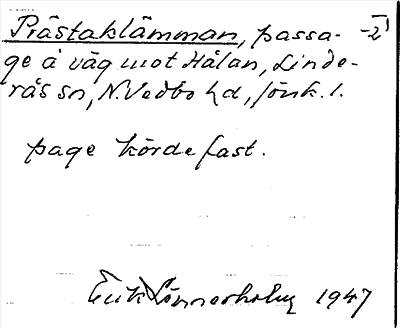 Prästaklämman, passa- -2)
ge å väg mot Hålan, Linde-
rås sn, N. Vedbo hd, Jönk. l.
page körde fast.
Erik Lönnerholm 1947